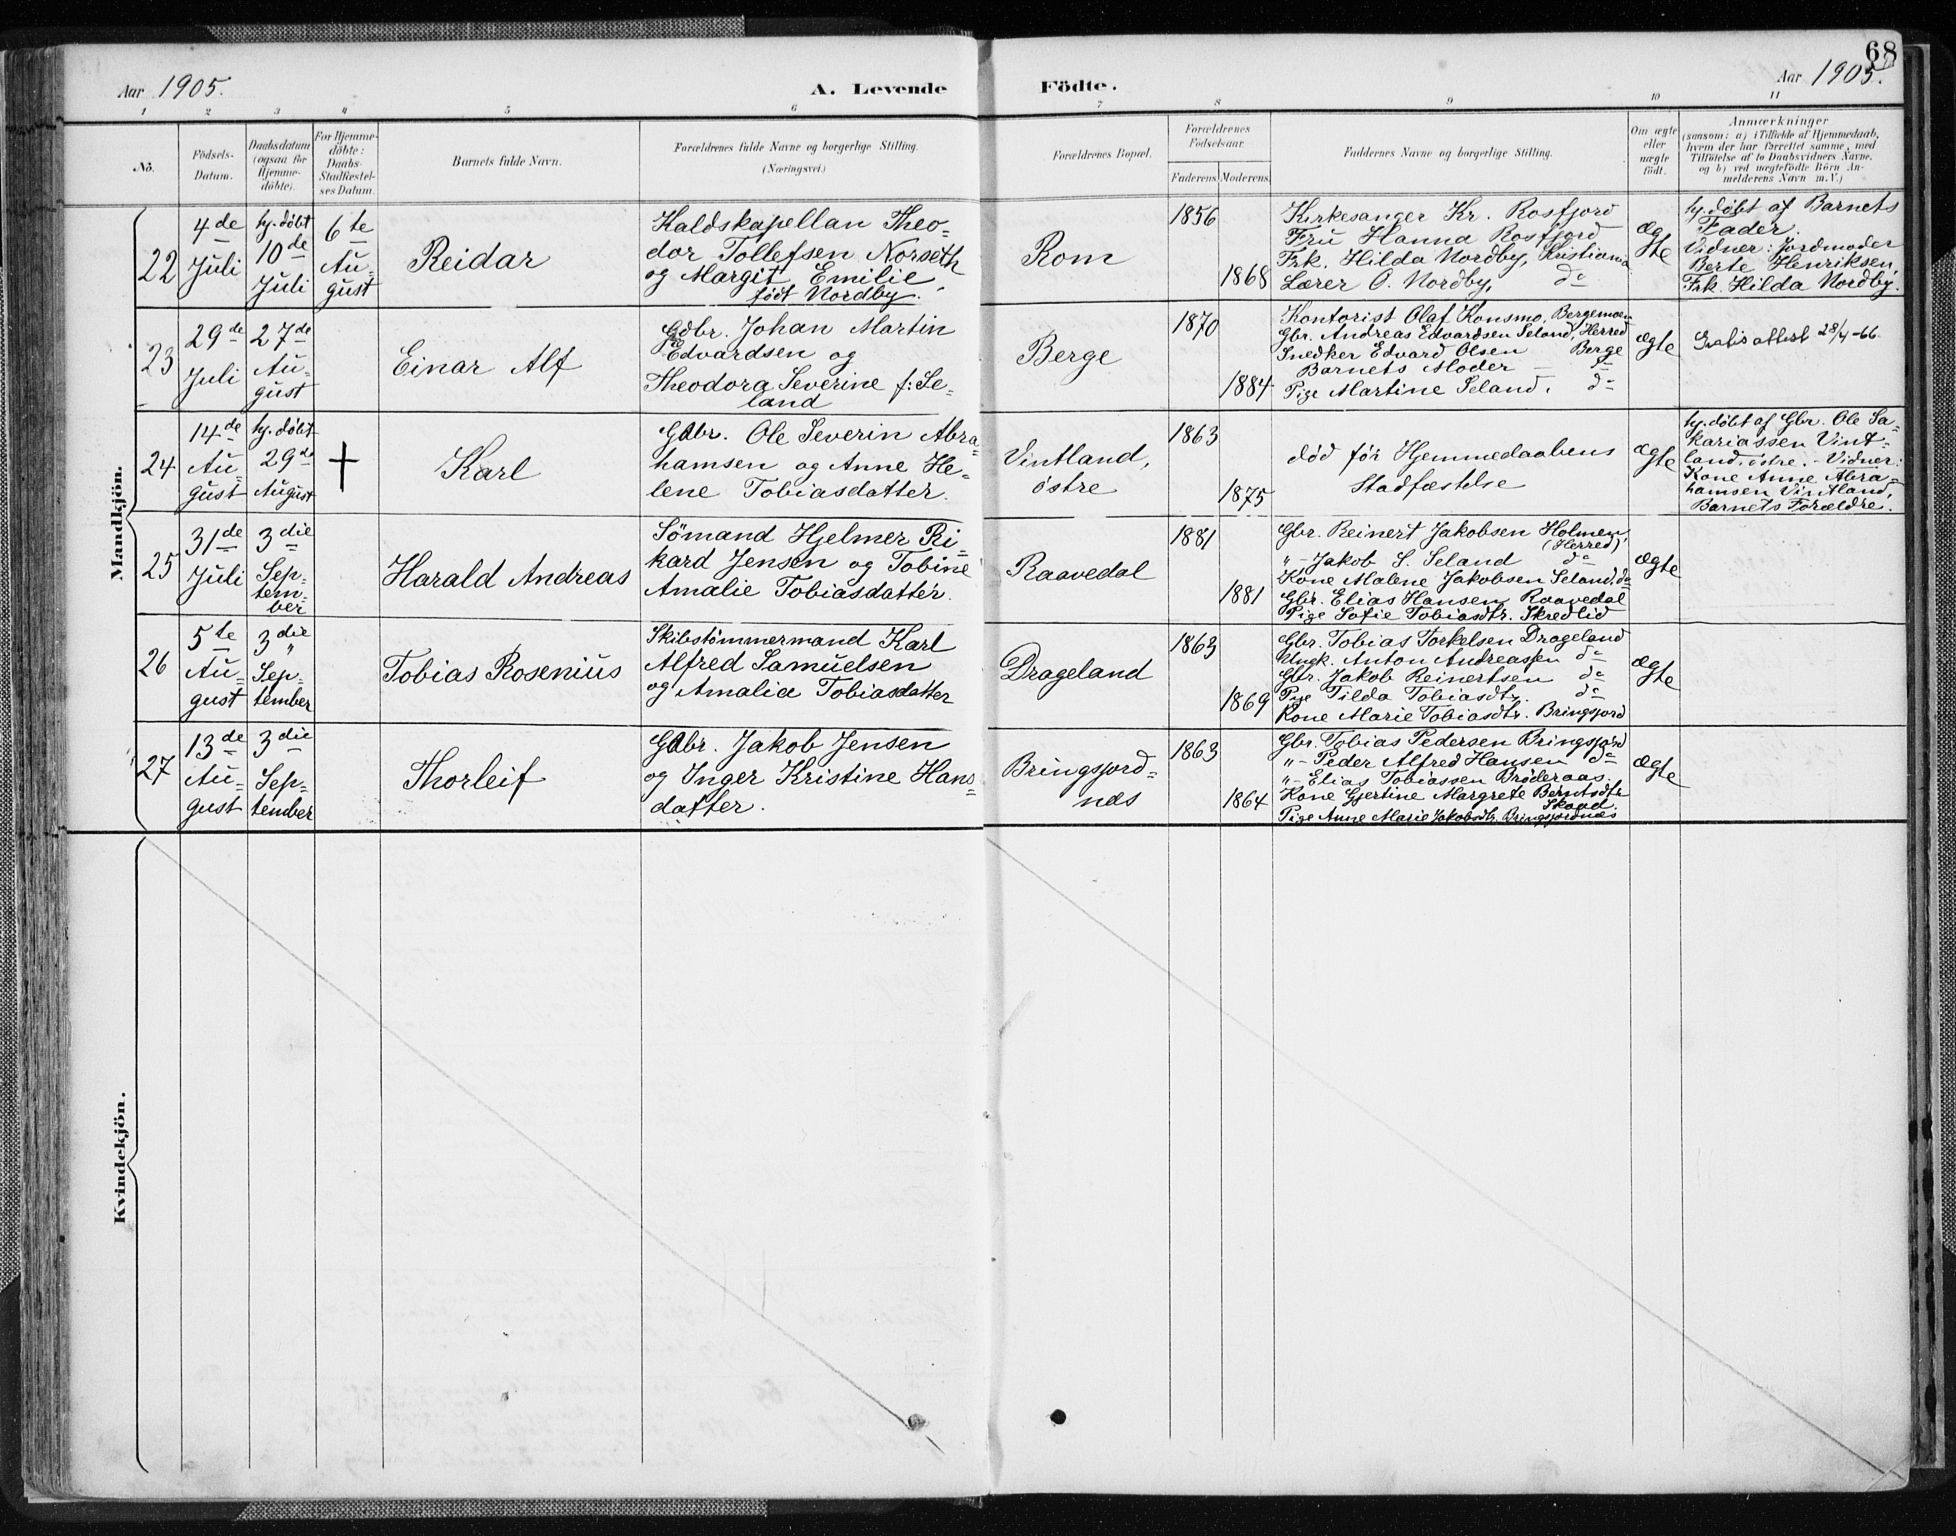 68
Aar 1905.
A. Levende Födte.
Aar 1905.
1 2 3 4 5 6 7 8 9 10 11
No.
Födsels-
Datum.
Daabsdatum
(ogsaa for
Hjemme-
döbte).
For Hjemme-
döbte:
Daabs-
Stadfæstel-
ses Datum.
Barnets fulde Navn.
Forældrenes fulde Navne og borgerlige Stilling.
(Næringsvei.)
Forældrenes Bopæl.
Forældrenes
Födselsaar.
Faderens. Moderens.
Faddernes Navne og borgerlige Stilling.
Om ægte
eller
uægte
födt.
Anmærkninger
(saasom: a) i Tilfælde af Hjemmedaab,
hvem der har forrettet samme, med
Tilföielse af to Daabsvidners Navne,
og b) ved uægtefödte Börn An-
melderens Navn m. V.)
Mandkjön.
22
4de
Juli
hj. døbt
10de
Juli
6te
Au-
gust
Reidar
Kaldskapellan Theo-
dor Tollefsen Norseth
og Margit Emilie
født Nordby.
Rom
1856
1868
Kirkesanger Kr. Rosfjord
Fru Hanna Rosfjord
Frk. Hilda Nordby, Kristiania
Lærer O. Nordby, do
æg
te
hj. døbt af Barnets
Fader.
Vidner: Jordmoder
Berte Henriksen,
Frk. Hilda Nordby.
23
29de
Juli
27de
Au-
gust
Einar Alf
Gdbr. Johan Martin
Edvardsen og
Theodora Severine f: Se-
land
Berge
1870
1884
Kontorist Olaf Konsmo, Bergemoen
Gbr. Andreas Edvardsen Seland, Herred
Snedker Edvard Olsen Berge
Barnets Moder — do
Pige Martine Seland. do
ægte
Gratis attest 28/4-66.
24
14de
Au-
gust
hj. døbt
29de
August
†
Karl
Gdbr. Ole Severin Abra-
hamsen og Anne He-
lene Tobiasdatter.
Vintland,
østre
1863
1875
død før Hjemmedaabens
Stadfæstelse
ægte
hj. døbt af Gbr. Ole Sa-
kariassen Vint-
land, østre. - Vidner:
Kone Anne Abra-
hamsen Vintland,
Barnets Forældre.
25
31de
Juli
3die
Sep-
tem-
ber
Harald Andreas
Sömand Hjelmer Ri-
kard Jensen og Tobine
Amalie Tobiasdatter.
Raavedal
1881
1881
Gbr. Reinert Jakobsen Holmen,
(Herred)
" - Jakob S. Seland do
Kone Malene Jakobsen Seland, do
Gbr. Elias Hansen Raavedal
Pige Sofie Tobiasdtr. Skredlid
ægte
26
5te
Au-
gust
3die
"
Sep-
tember
Tobias Rosenius
Skibstømmermand Karl
Alfred Samuelsen
og Amalia Tobiasdatter
Drageland
1863
1869
Gbr. Tobias Torkelsen Drageland
Ungk. Anton Andreassen do
Gbr. Jakob Reinertsen do
Pige Tilda Tobiasdtr. do
Kone Marie Tobiasdtr. Bringsjord
ægte
27
13de
Au-
gust
3die
Sep-
tember
Thorleif
Gdbr. Jakob Jensen
og Inger Kristine Hans-
datter.
Bringsjord-
næs
1863
1864
Gbr. Tobias Pedersen Bringsjord
" - Peder Alfred Hansen do
" - Elias Tobiassen Brøderaas.
Kone Gjertine Margrete Berntsdtr
Skaad.
Pige Anne Marie Jakobsdtr. Bringsjordnæs
ægte
Kvindekjön.